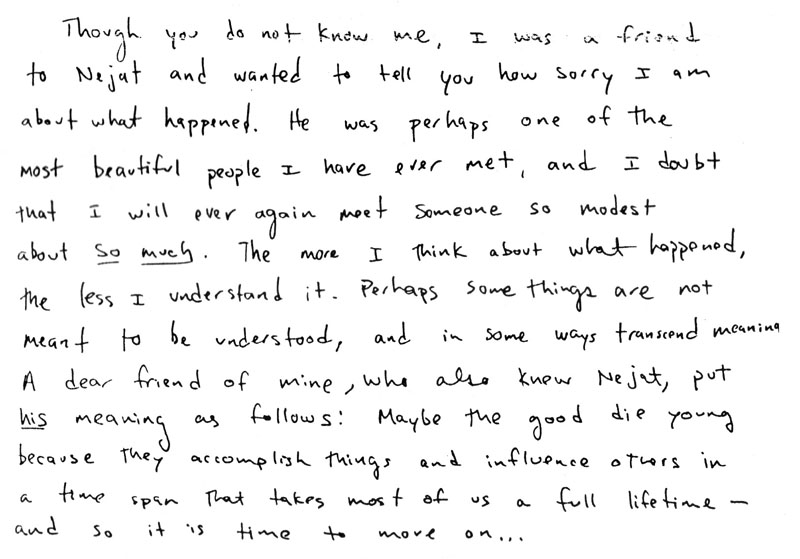 Though you do not know me, I was a friend
to Nejat and wanted to tell you how sorry I am
about what happened. He was perhaps one of the
most beautiful people I have ever met, and I doubt
that I will ever again meet someone so modest
about so much. The more I think about what happened,
the less I understand it. Perhaps some things are not
meant to be understood, and in some ways transcend meaning
A dear friend of mine, who also knew Nejat, put
his meaning as follows: Maybe the good die young
because they accomplish things and influence others in
a time span that takes most of us a full lifetime –
and so it is time to move on...